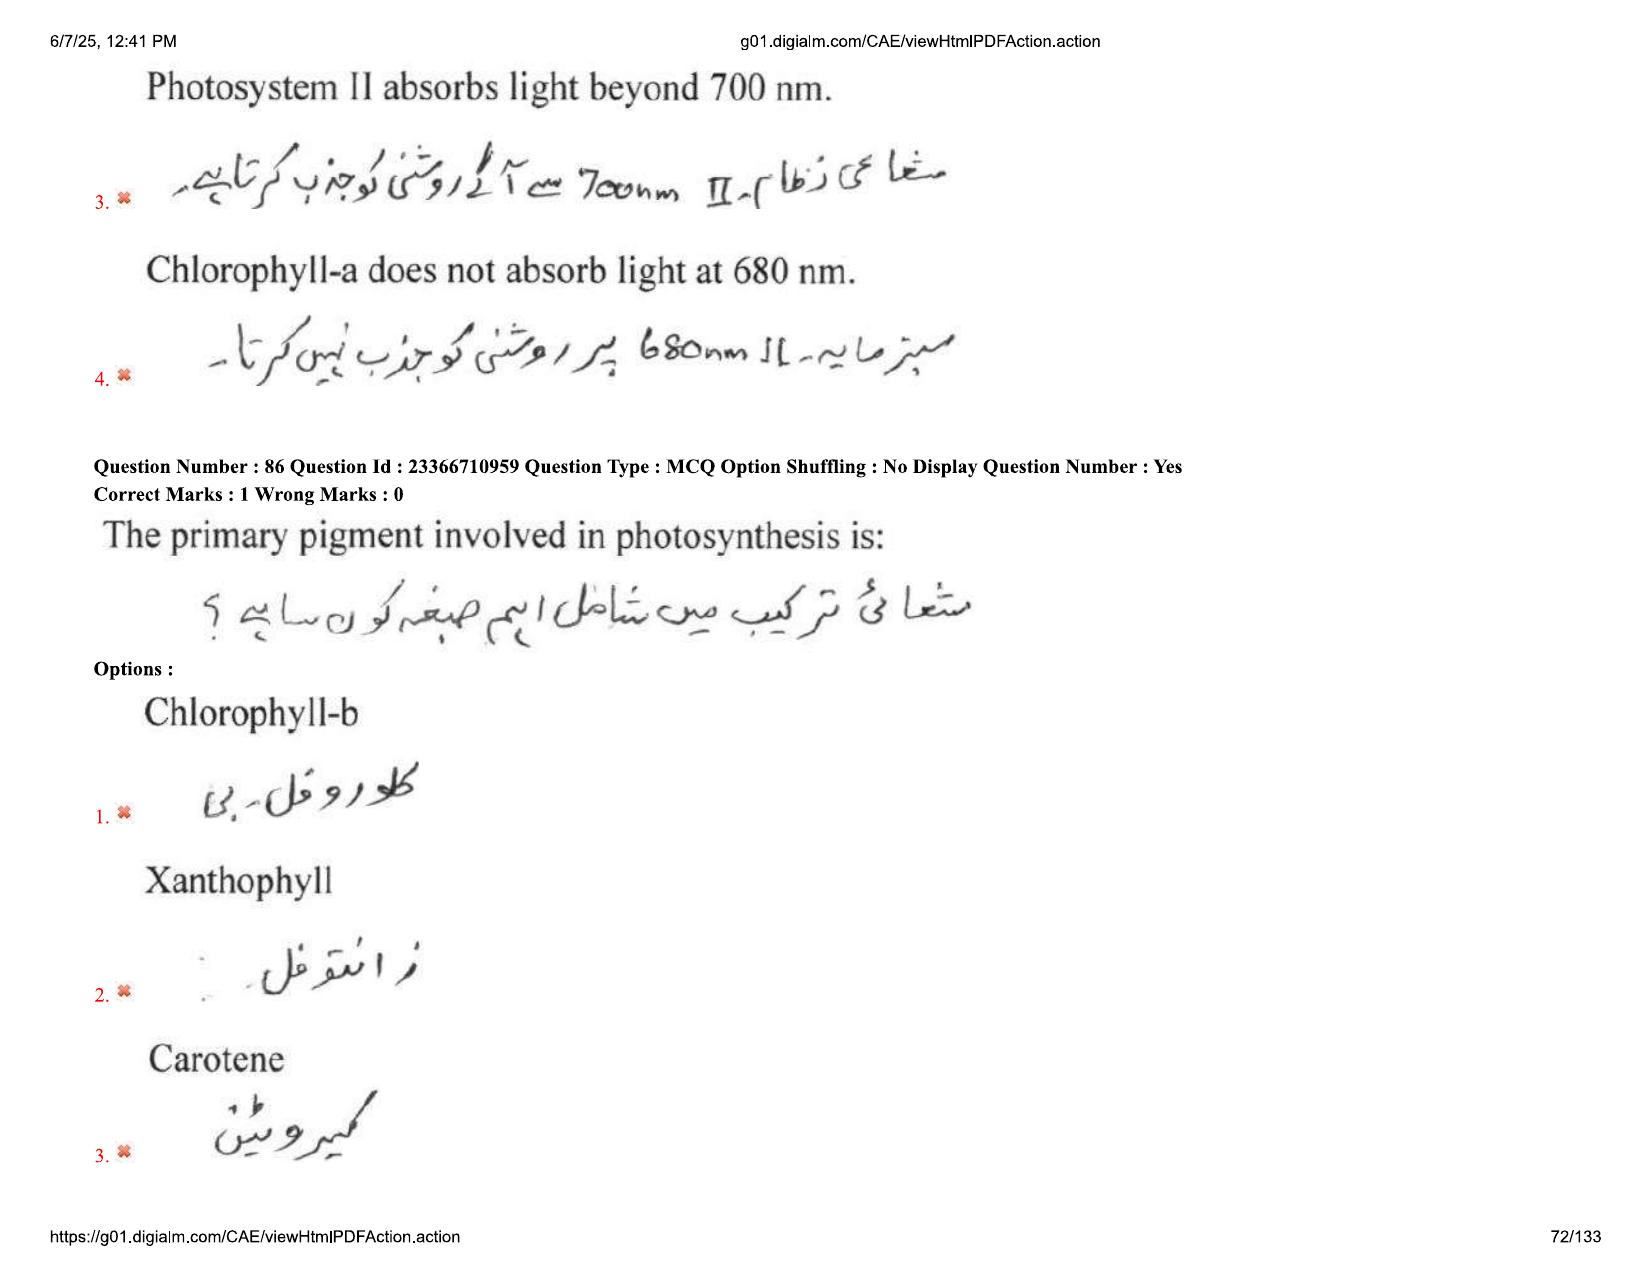 6/7/25, 12:41 PM g01.digialm.com/CAE/viewHtmlPDFAction.action
Photosystem II absorbs light beyond 700 nm.
3. شعاعی نظام-II 700nm سے آگے روشنی کو جذب کرتا ہے۔
Chlorophyll-a does not absorb light at 680 nm.
4. سبز مایہ۔ 680nm پر روشنی کو جذب نہیں کرتا۔
Question Number : 86 Question Id : 23366710959 Question Type : MCQ Option Shuffling : No Display Question Number : Yes
Correct Marks : 1 Wrong Marks : 0
The primary pigment involved in photosynthesis is:
شعائی ترکیب میں شامل اہم صبغہ کون سا ہے ؟
Options :
Chlorophyll-b
1. کلوروفل۔بی
Xanthophyll
2. زانتوفل
Carotene
3. کیروٹین
https://g01.digialm.com/CAE/viewHtmlPDFAction.action 72/133